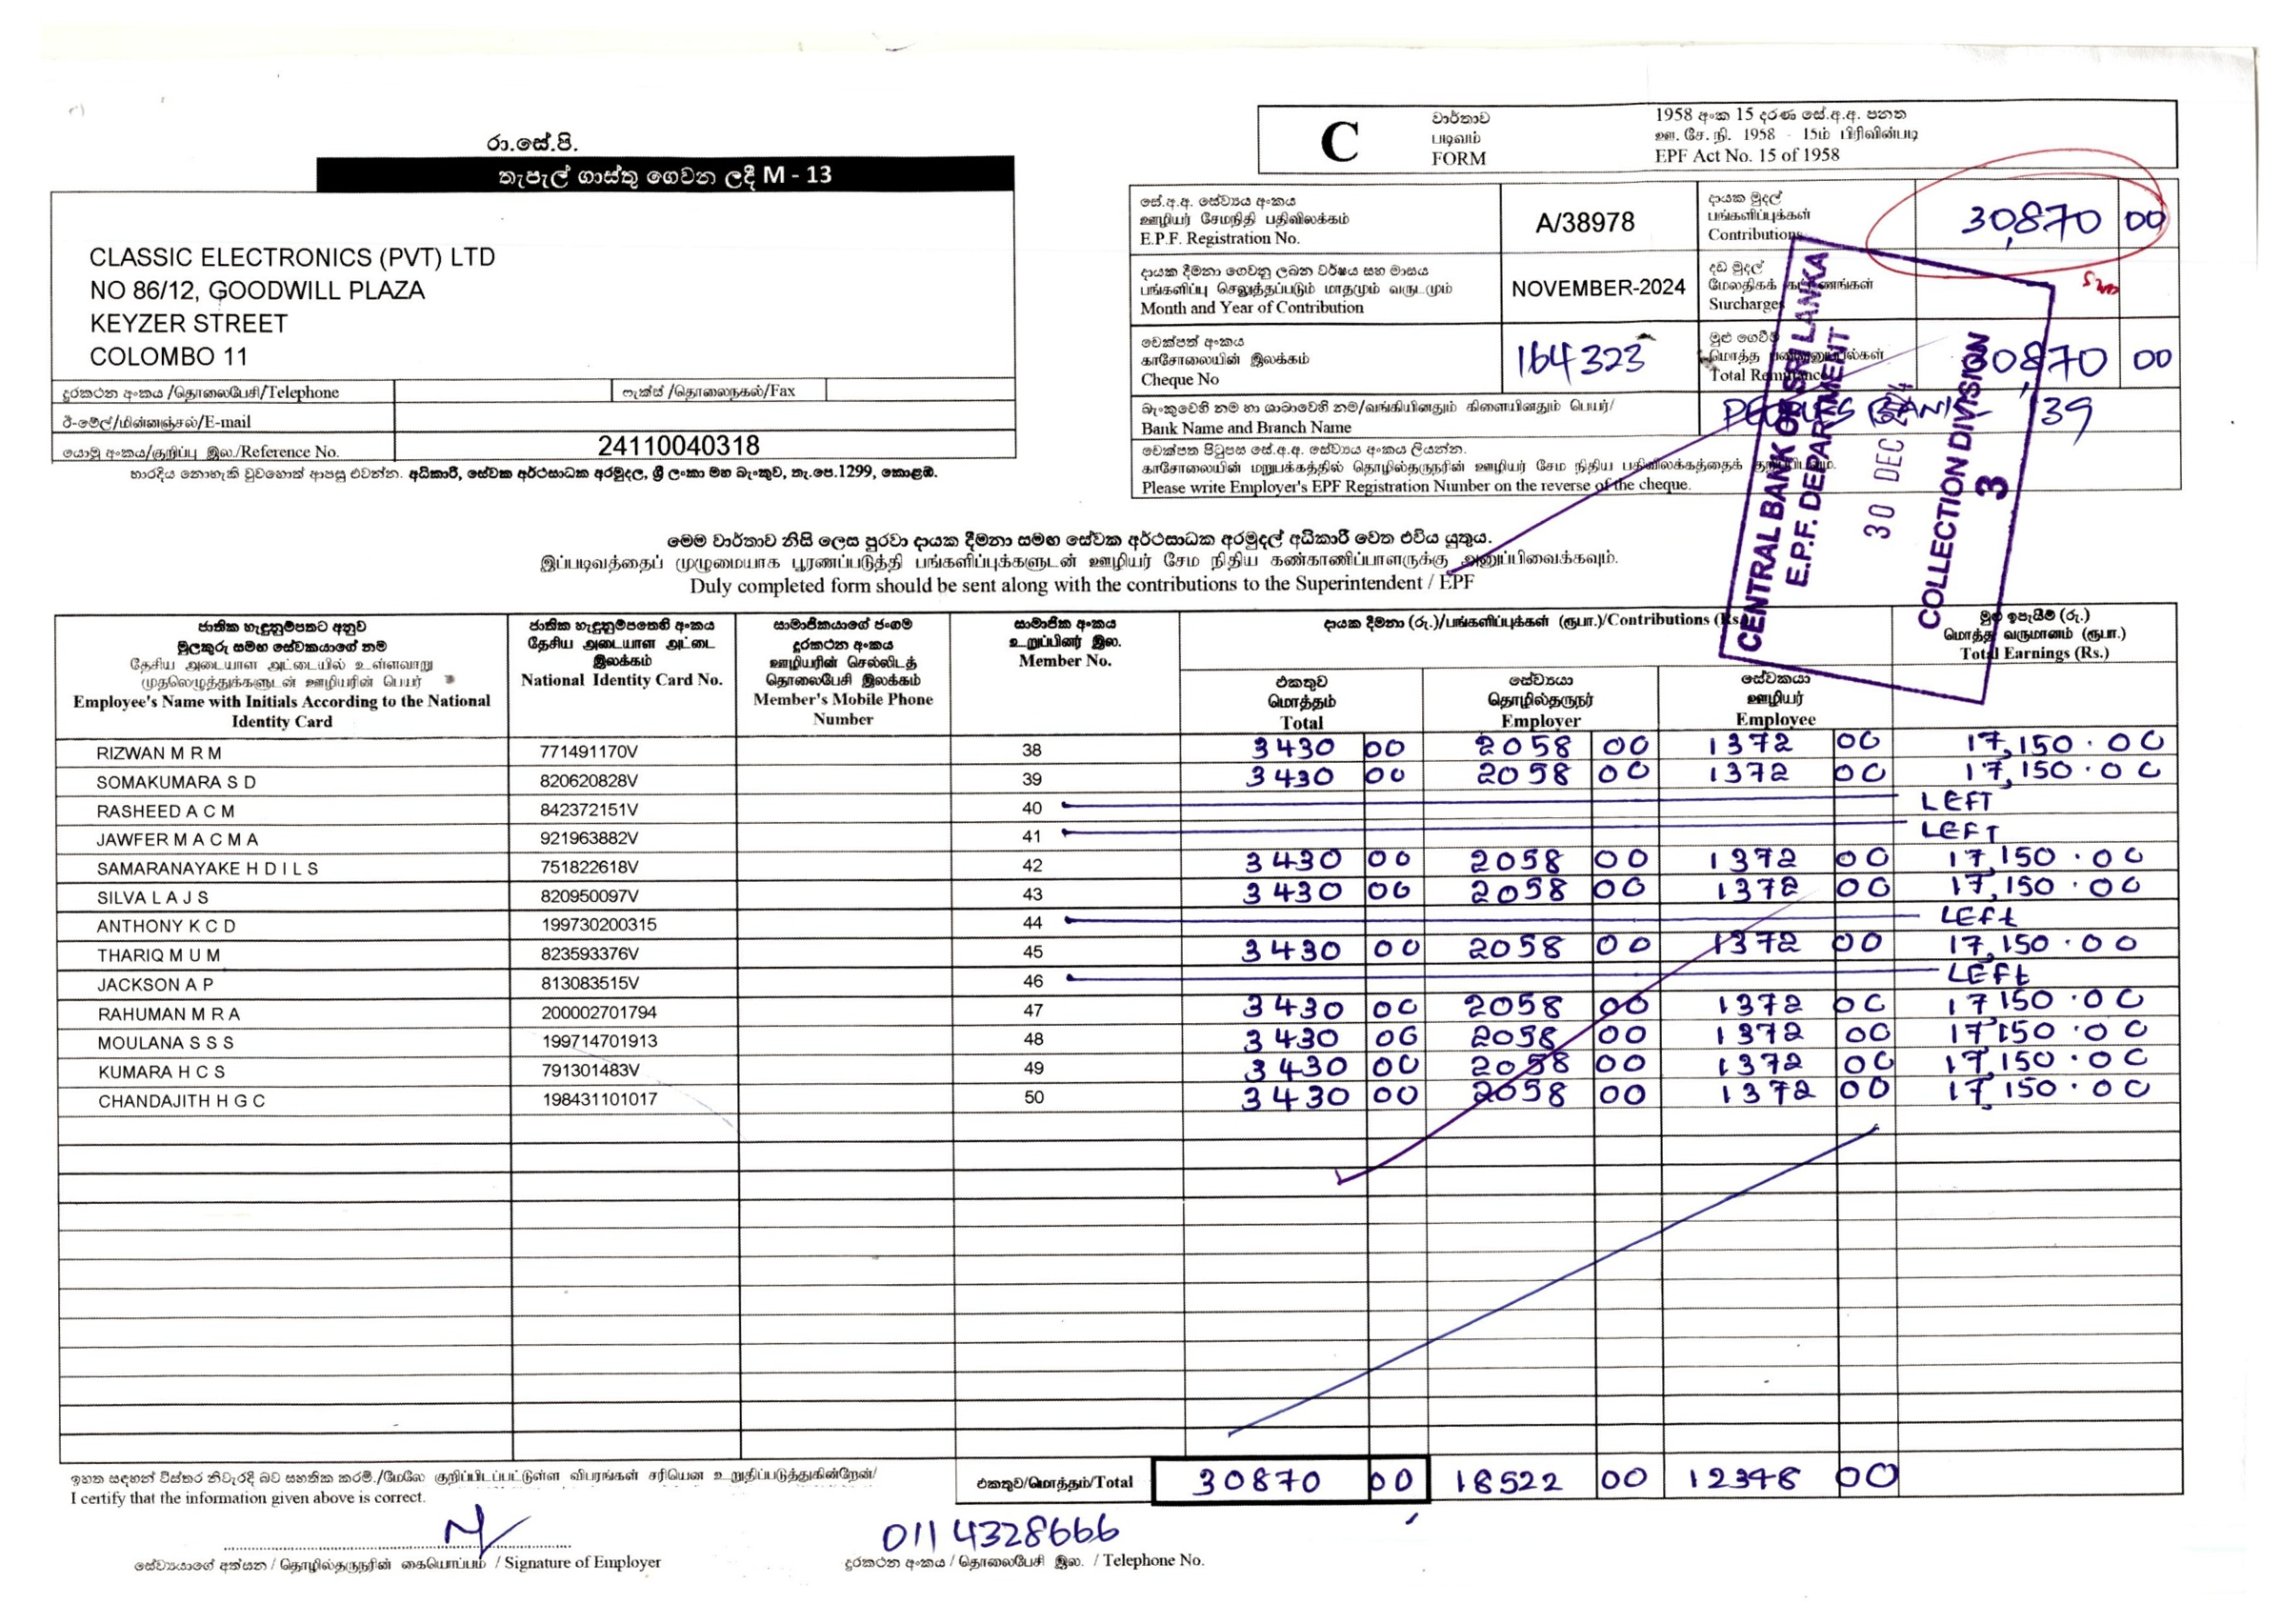 රා.සේ.පි.
තැපැල් ගාස්තු ගෙවන ලදී M - 13
CLASSIC ELECTRONICS (PVT) LTD
NO 86/12, GOODWILL PLAZA
KEYZER STREET
COLOMBO 11
දුරකථන අංකය /தொலைபேசி/Telephone
ෆැක්ස් /தொலைநகல்/Fax
ඊ-මේල්/மின்னஞ்சல்/E-mail
යොමු අංකය/குறிப்பு இல./Reference No. 24110040318
භාරදිය නොහැකි වුවහොත් ආපසු එවන්න. අධිකාරී, සේවක අර්ථසාධක අරමුදල, ශ්‍රී ලංකා මහ බැංකුව, තැ.පෙ.1299, කොළඹ.
C
වාර්තාව
படிவம்
FORM
1958 අංක 15 දරණ සේ.අ.අ. පනත
ஊ. சே. நி. 1958 - 15ம் பிரிவின்படி
EPF Act No. 15 of 1958
සේ.අ.අ. සේව්‍යය අංකය
ஊழியர் சேமநிதி பதிவிலக்கம்
E.P.F. Registration No.
A/38978
දායක මුදල්
பங்களிப்புக்கள்
Contributions
30,870 00
දායක දීමනා ගෙවනු ලබන වර්ෂය සහ මාසය
பங்களிப்பு செலுத்தப்படும் மாதமும் வருடமும்
Month and Year of Contribution
NOVEMBER-2024
දඩ මුදල්
மேலதிகக்
Surcharges
චෙක්පත් අංකය
காசோலையின் இலக்கம்
Cheque No
164323
මුළු
மொத்த
Total Remittance
30,870 00
බැංකුවෙහි නම හා ශාඛාවෙහි නම/வங்கியினதும் கிளையினதும் பெயர்/
Bank Name and Branch Name
PEOPLES BANK - 139
චෙක්පත පිටුපස සේ.අ.අ. සේව්‍යය අංකය ලියන්න.
காசோலையின் மறுபக்கத்தில் தொழில்தருநரின் ஊழியர் சேம நிதிய பதிவிலக்கத்தைக்
Please write Employer's EPF Registration Number on the reverse of the cheque.
CENTRAL BANK OF SRI LANKA
E.P.F. DEPARTMENT
30 DEC
COLLECTION DIVISION
3
මෙම වාර්තාව නිසි ලෙස පුරවා දායක දීමනා සමඟ සේවක අර්ථසාධක අරමුදල් අධිකාරී වෙත එවිය යුතුය.
இப்படிவத்தைப் முழுமையாக பூரணப்படுத்தி பங்களிப்புக்களுடன் ஊழியர் சேம நிதிய கண்காணிப்பாளருக்கு அனுப்பிவைக்கவும்.
Duly completed form should be sent along with the contributions to the Superintendent / EPF
ජාතික හැඳුනුම්පතට අනුව
මුලකුරු සමඟ සේවකයාගේ නම
தேசிய அடையாள அட்டையில் உள்ளவாறு
முதலெழுத்துக்களுடன் ஊழியரின் பெயர்
Employee's Name with Initials According to the National
Identity Card
ජාතික හැඳුනුම්පතෙහි අංකය
தேசிய அடையாள அட்டை
இலக்கம்
National Identity Card No.
සාමාජිකයාගේ ජංගම
දුරකථන අංකය
ஊழியரின் செல்லிடத்
தொலைபேசி இலக்கம்
Member's Mobile Phone
Number
සාමාජික අංකය
உறுப்பினர் இல.
Member No.
දායක දීමනා (රු.)/பங்களிப்புக்கள் (ரூபா.)/Contributions (Rs.)
එකතුව
மொத்தம்
Total
සේව්‍යයා
தொழில்தருநர்
Employer
සේවකයා
ஊழியர்
Employee
මුළු ඉපැයීම් (රු.)
மொத்த வருமானம் (ரூபா.)
Total Earnings (Rs.)
RIZWAN M R M 771491170V 38 3430 00 2058 00 1372 00 17,150.00
SOMAKUMARA S D 820620828V 39 3430 00 2058 00 1372 00 17,150.00
RASHEED A C M 842372151V 40 LEFT
JAWFER M A C M A 921963882V 41 LEFT
SAMARANAYAKE H D I L S 751822618V 42 3430 00 2058 00 1372 00 17,150.00
SILVA L A J S 820950097V 43 3430 00 2058 00 1372 00 17,150.00
ANTHONY K C D 199730200315 44 LEFt
THARIQ M U M 823593376V 45 3430 00 2058 00 1372 00 17,150.00
JACKSON A P 813083515V 46 LEFt
RAHUMAN M R A 200002701794 47 3430 00 2058 00 1372 00 17,150.00
MOULANA S S S 199714701913 48 3430 00 2058 00 1372 00 17,150.00
KUMARA H C S 791301483V 49 3430 00 2058 00 1372 00 17,150.00
CHANDAJITH H G C 198431101017 50 3430 00 2058 00 1372 00 17,150.00
ඉහත සඳහන් විස්තර නිවැරදි බව සහතික කරමි./மேலே குறிப்பிடப்பட்டுள்ள விபரங்கள் சரியென உறுதிப்படுத்துகின்றேன்/
I certify that the information given above is correct.
එකතුව/மொத்தம்/Total 30870 00 18522 00 12348 00
011 4328666
සේව්‍යයාගේ අත්සන / தொழில்தருநரின் கையொப்பம் / Signature of Employer
දුරකථන අංකය / தொலைபேசி இல. / Telephone No.